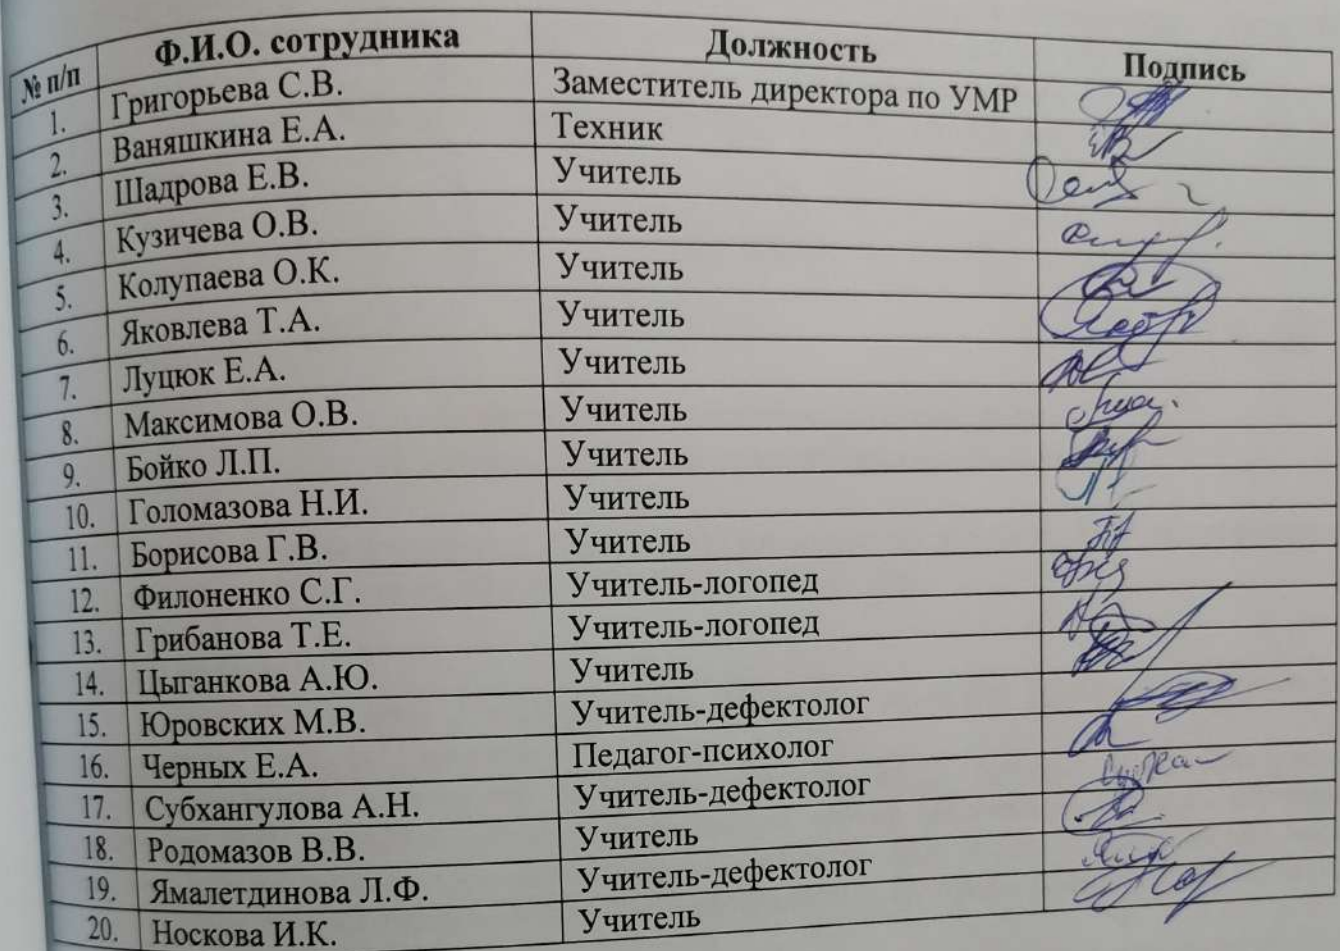 № п/п Ф.И.О. сотрудника Должность Подпись
1. Григорьева С.В. Заместитель директора по УМР
2. Ваняшкина Е.А. Техник
3. Шадрова Е.В. Учитель
4. Кузичева О.В. Учитель
5. Колупаева О.К. Учитель
6. Яковлева Т.А. Учитель
7. Луцюк Е.А. Учитель
8. Максимова О.В. Учитель
9. Бойко Л.П. Учитель
10. Голомазова Н.И. Учитель
11. Борисова Г.В. Учитель
12. Филоненко С.Г. Учитель-логопед
13. Грибанова Т.Е. Учитель-логопед
14. Цыганкова А.Ю. Учитель
15. Юровских М.В. Учитель-дефектолог
16. Черных Е.А. Педагог-психолог
17. Субхангулова А.Н. Учитель-дефектолог
18. Родомазов В.В. Учитель
19. Ямалетдинова Л.Ф. Учитель-дефектолог
20. Носкова И.К. Учитель